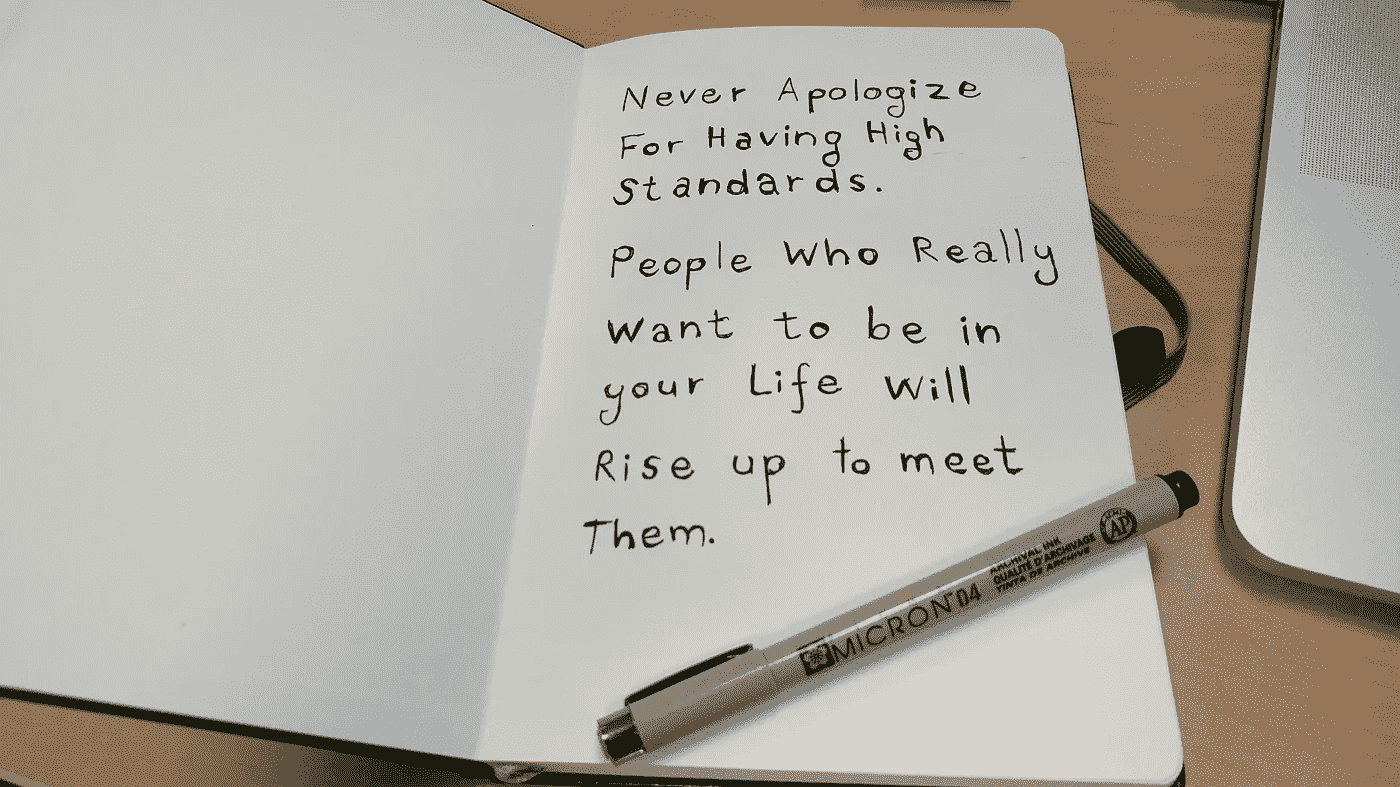 Never Apologize
For Having High
Standards.
People Who Really
Want to be in
your Life Will
Rise up to meet
Them.
MICRON 04
ARCHIVAL INK
QUALITÉ D'ARCHIVAGE
TINTA DE ARCHIVE
AP